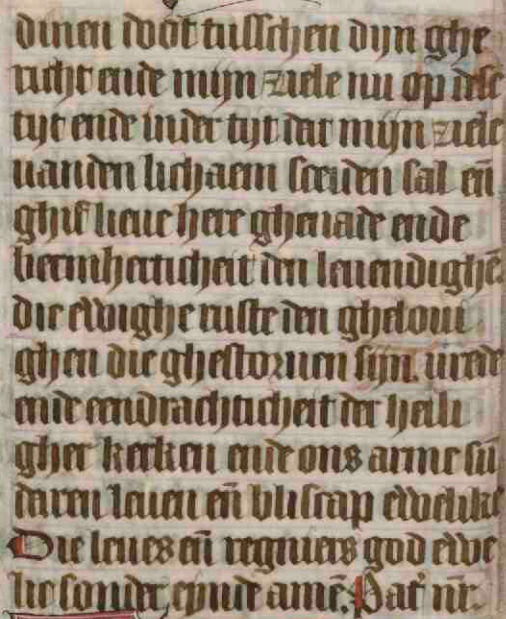 dinen doot tusschen dyn ghe
richt ende mijn ziele nu op dese
tijt ende inder tijt dat mijn ziele
vanden lichaem sceiden sal eñ
ghif lieue here ghenade ende
bermherticheit den leuendighē.
die ewighe ruste den gheloui
ghen die ghestoruen sijn. vrede
ende eendrachticheit der heili
gher kerken ende ons arme sū
daren leuen eñ bliscap ewelike
Die leues eñ regniers god ewe
lic sonder eynde amē. Pat' nr̄.